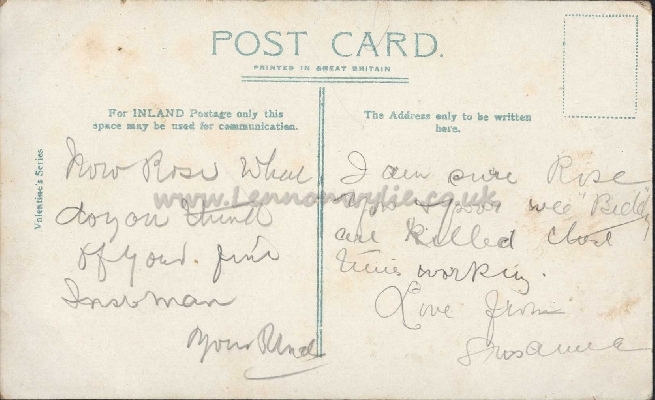 POST CARD.
PRINTED IN GREAT BRITAIN
For INLAND Postage only this
space may be used for communication.
The Address only to be written
here.
Valentine's Series
Now Rose What
do you think
of your. fine
man
Your
I am sure Rose
you & your wee "Biddy"
are killed
time working.
Love from
Susanna
www.Lennonwylie.co.uk